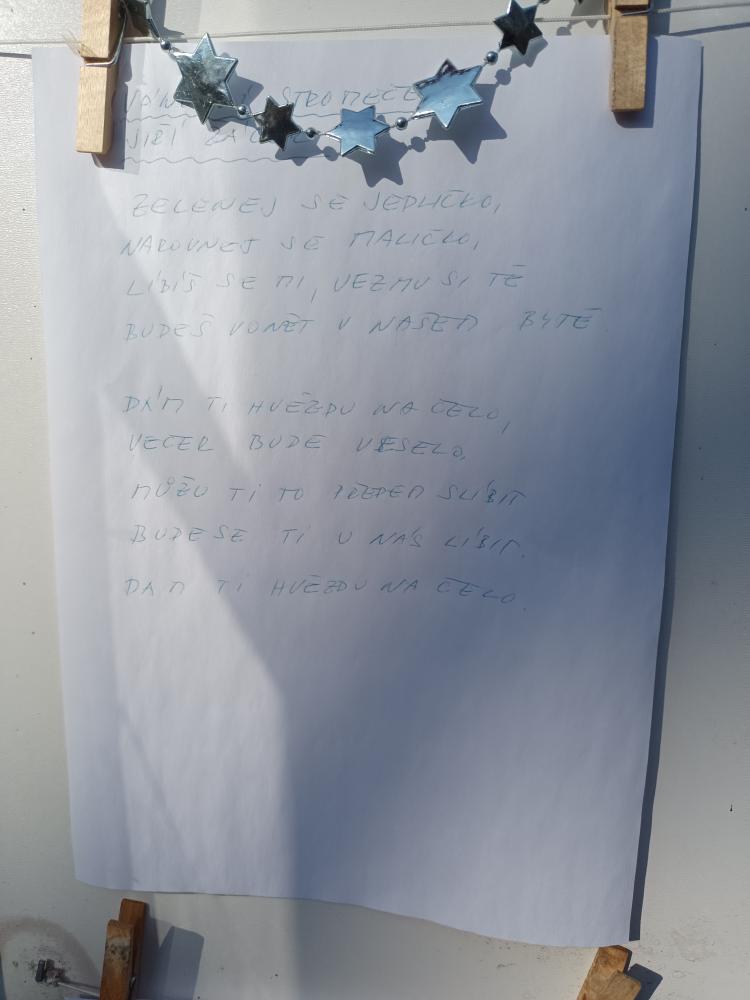 STROMEČE
JIŘÍ
ZELENEJ SE JEDLIČKO,
NAROVNEJ SE MALIČKO,
LÍBÍŠ SE MI, VEZMU SI TĚ
BUDEŠ VONĚT V NAŠEM BYTĚ.
DÁM TI HVĚZDU NA ČELO,
VEČER BUDE VESELO,
MŮŽU TI TO PŘEDEM SLÍBIT
BUDE SE TI U NÁS LÍBIT.
DÁM TI HVĚZDU NA ČELO.